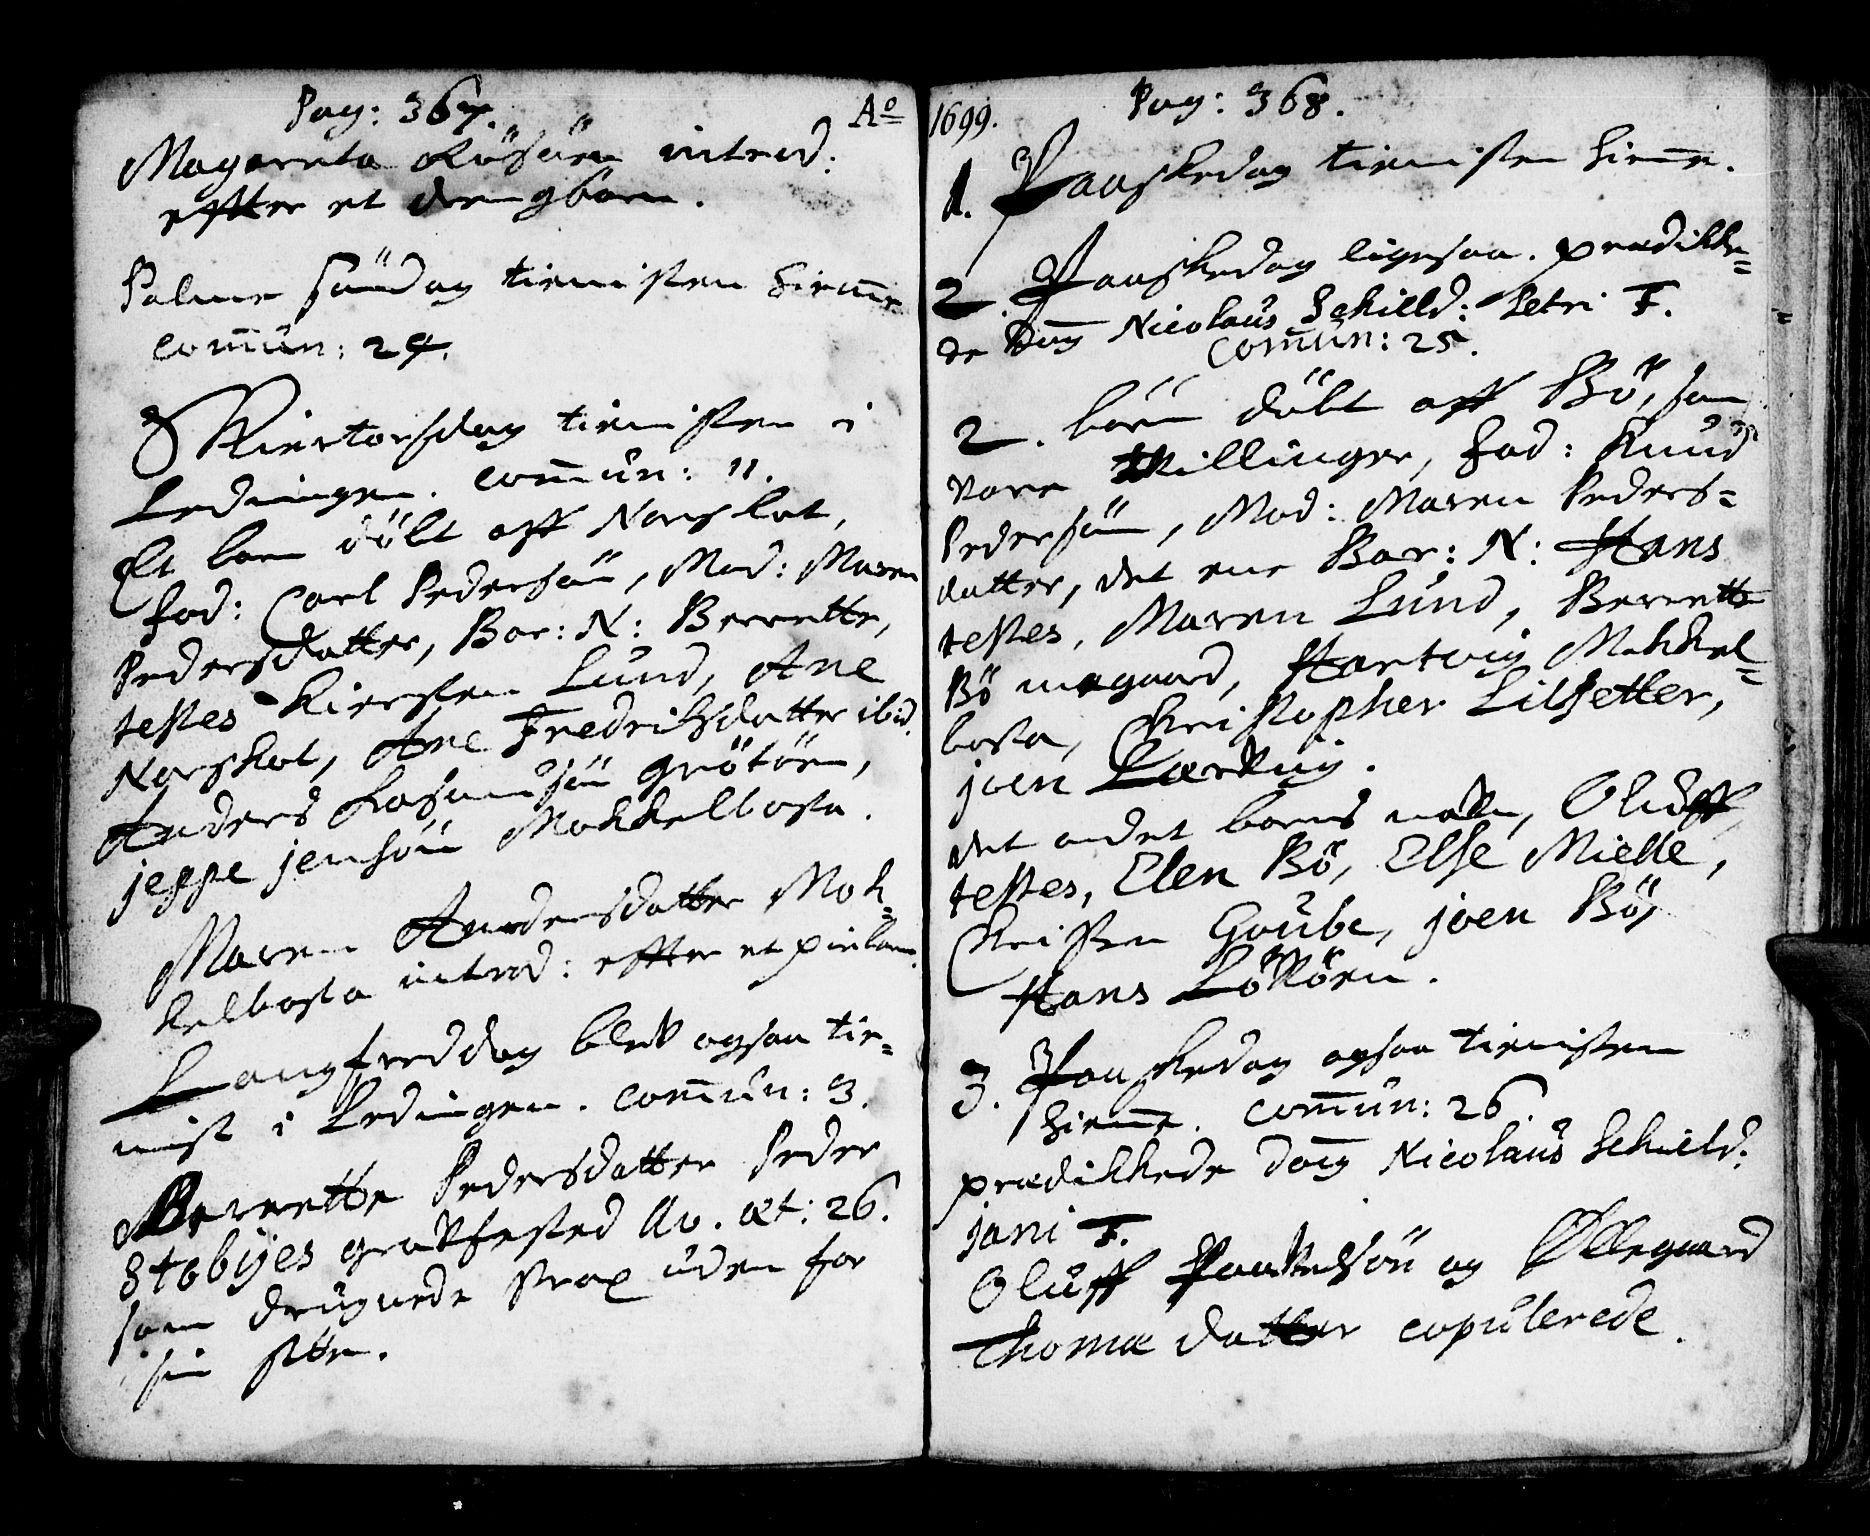 Pag: 367.
Magareta Röhsön introd:
effter et drengbarn.
Palme söndag tienisten hieme
comūn: 24.
Skiertorsdag tienisten i
Lødingen. comūn: 11.
Et barn döbt aff Norskot,
fad: Carl Pedersön, Mod: Maren
Pedersdatter, Bar: N: Berrette,
testes Kiersten Lund, Ane
Norskot, Ane Fredrichsdatter ibid.
Anders Rasmusön Grötöen,
jeppe jensön Mokkelbosta.
Maren Andersdatter Mok=
kelbosta introd: effter et pirbarn.
Langfreddag blev ogsaa tie=
nist i Lødingen. comūn: 3.
Berrette Pedersdatter Peder
Stobyes gravfested Ao. æt: 26.
som drugnede strax uden for
sin støe.
Ao 1699.
Pag: 368.
1. Paaskedag tienisten hieme.
2. Paaskedag ligesaa. prædikke=
de Dom Nicolaus Schilld: Petri F.
comūn: 25.
2. börn döbt aff Bö, som
vare tvillinger, fad: Knud
Pedersön, Mod: Maren Peders=
datter, det ene Bar: N: Hans
testes, Maren Lund, Berrette
Bö megaard, Hartvig Mokkel=
bosta, Christopher Lilsetter,
joen Larking.
det andet barns navn, Oluff,
testes, Elen Bö, Else Mielle,
Christen Gaube, joen Bö,
Hans Lövöen.
3. Paaskedag ogsaa tienisten
hieme. comūn: 26.
prædikkede Dom Nicolaus Schilld:
jani F.
Oluff Paavelsön og Ollegaard
Thomæ datter copulerede.